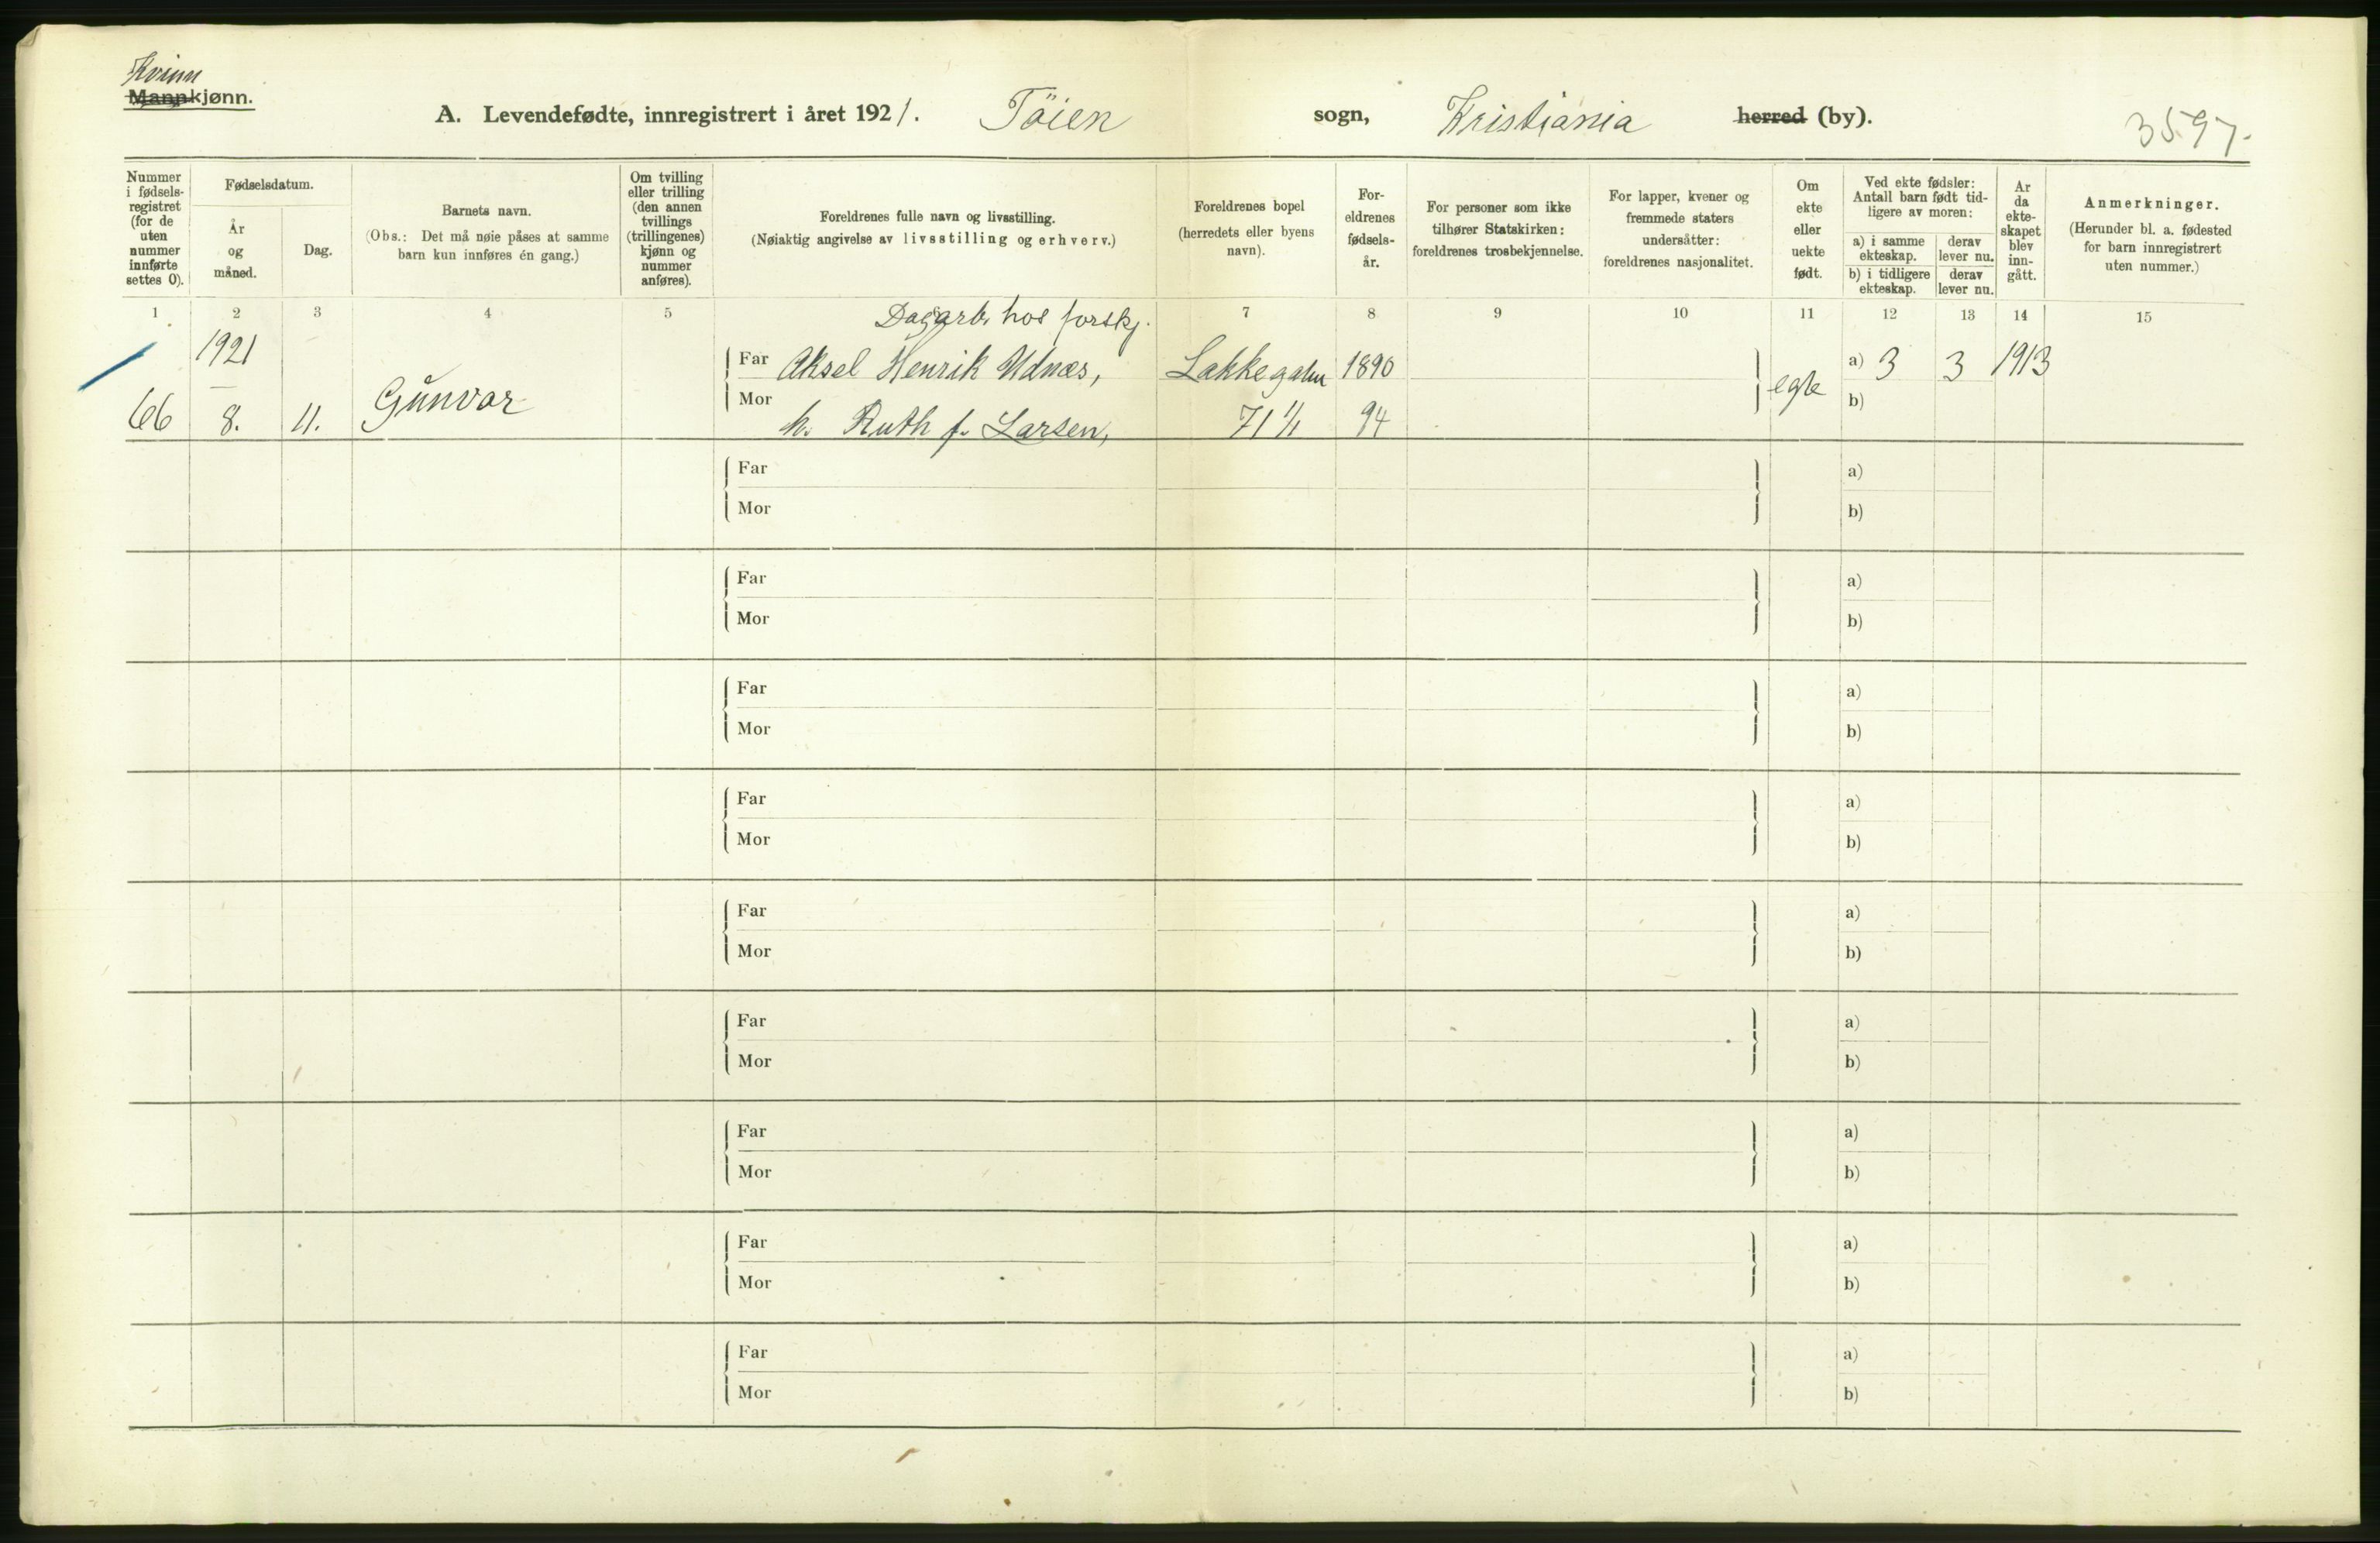 Kvinn
Mannkjønn.
A. Levendefødte, innregistrert i året 1921. Töien sogn, Kristiania herred (by).
3597.
Nummer i fødselsregistret (for de uten nummer innførte settes 0).
Fødselsdatum.
År og måned.
Dag.
Barnets navn.
(Obs.: Det må nøie påses at samme barn kun innføres én gang.)
Om tvilling eller trilling (den annen tvillings (trillingenes) kjønn og nummer anføres).
Foreldrenes fulle navn og livsstilling.
(Nøiaktig angivelse av livsstilling og erhverv.)
Foreldrenes bopel (herredets eller byens navn).
Foreldrenes fødselsår.
For personer som ikke tilhører Statskirken: foreldrenes trosbekjennelse.
For lapper, kvener og fremmede staters undersåtter: foreldrenes nasjonalitet.
Om ekte eller uekte født.
Ved ekte fødsler: Antall barn født tidligere av moren:
a) i samme ekteskap.
derav lever nu.
b) i tidligere ekteskap.
derav lever nu.
År da ekteskapet blev inngått.
Anmerkninger.
(Herunder bl. a. fødested for barn innregistrert uten nummer.)
1 2 3 4 5 7 8 9 10 11 12 13 14 15
Dagarb. hos forskj.
1921
Far Aksel Henrik Udnæs, Lakkegaten 1890 a) 3 3 1913
66 8. 11. Gunvor egte
Mor h. Ruth f. Larsen, 71 1/1 94 b)
Far a)
Mor b)
Far a)
Mor b)
Far a)
Mor b)
Far a)
Mor b)
Far a)
Mor b)
Far a)
Mor b)
Far a)
Mor b)
Far a)
Mor b)
Far a)
Mor b)